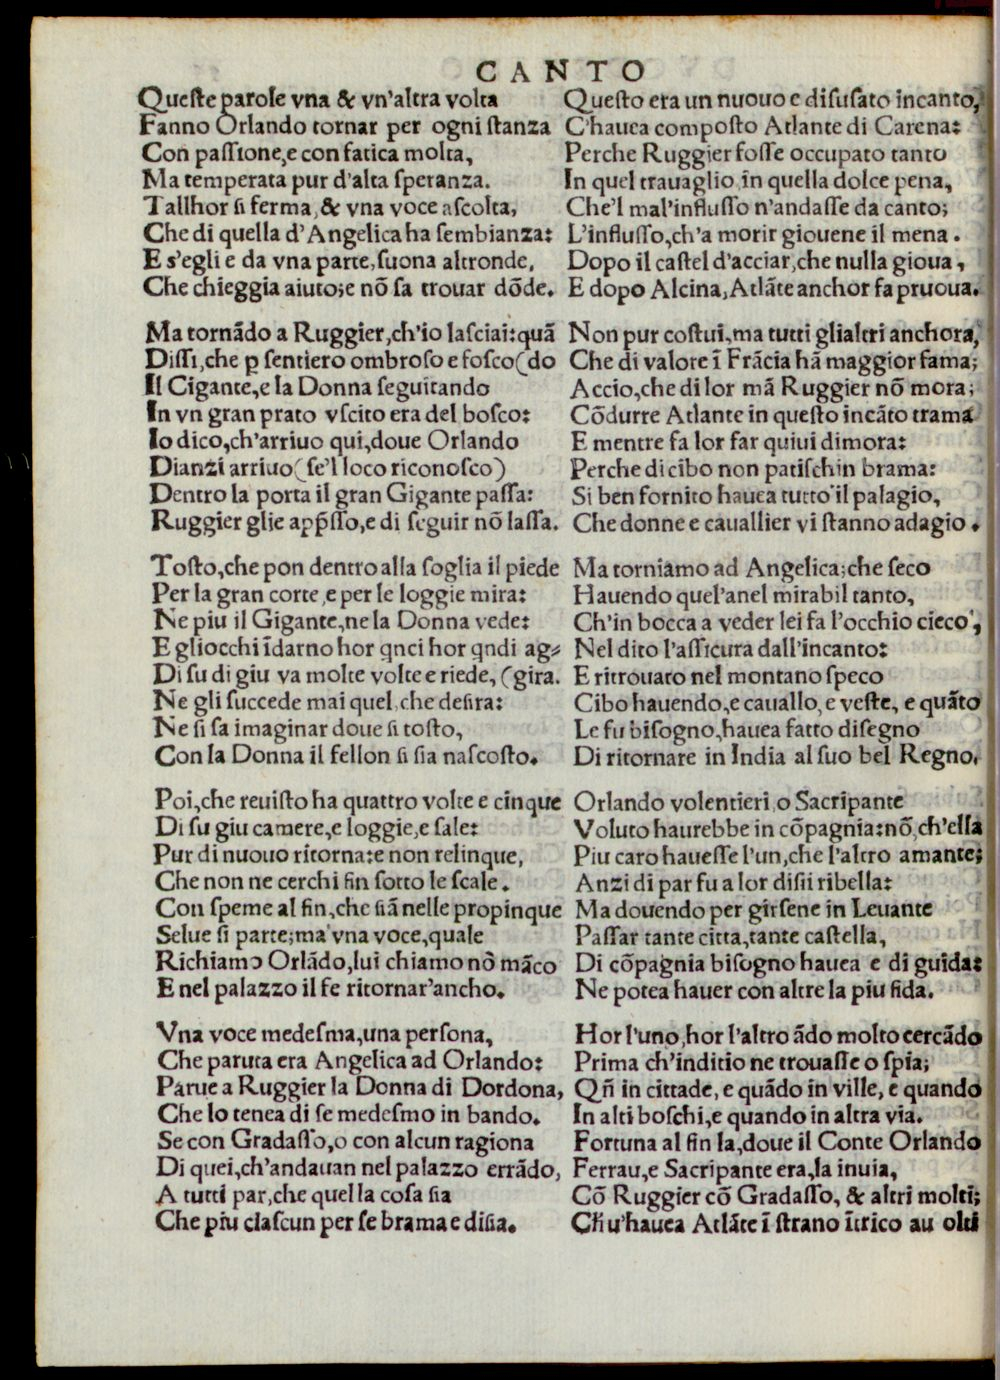 CANTO
Queſte parole vna & vn'altra volta
Fanno Orlando tornar per ogni ſtanza
Con paſſione,e con fatica molta,
Ma temperata pur d'alta ſperanza.
Tallhor ſi ferma,& vna voce aſcolta,
Che di quella d'Angelica ha ſembianza:
E s'egli e da vna parte,ſuona altronde,
Che chieggia aiuto;e nõ ſa trouar dõde.
Ma tornãdo a Ruggier,ch'io laſciai:quã
Diſſi,che ꝑ ſentiero ombroſo e foſco(do
Il Gigante,e la Donna ſeguitando
In vn gran prato vſcito era del boſco:
Io dico,ch'arriuo qui,doue Orlando
Dianzi arriuo(ſe'l loco riconoſco)
Dentro la porta il gran Gigante paſſa:
Ruggier glie app̃ſſo,e di ſeguir nõ laſſa.
Toſto,che pon dentro alla ſoglia il piede
Per la gran corte,e per le loggie mira:
Ne piu il Gigante,ne la Donna vede:
E gliocchi ĩdarno hor qnci hor qndi ag⸗
Di ſu di giu va molte volte e riede, (gira.
Ne gli ſuccede mai quel,che deſira:
Ne ſi ſa imaginar doue ſi toſto,
Con la Donna il fellon ſi ſia naſcoſto.
Poi,che reuiſto ha quattro volte e cinque
Di ſu giu camere,e loggie,e ſale:
Pur di nuouo ritorna:e non relinque,
Che non ne cerchi fin ſotto le ſcale.
Con ſpeme al fin,che ſiã nelle propinque
Selue ſi parte;ma vna voce,quale
Richiamo Orlãdo,lui chiamo nõ mãco
E nel palazzo il fe ritornar'ancho.
Vna voce medeſma,una perſona,
Che paruta era Angelica ad Orlando:
Parue a Ruggier la Donna di Dordona,
Che lo tenea di ſe medeſmo in bando.
Se con Gradaſſo,o con alcun ragiona
Di quei,ch'andauan nel palazzo errãdo,
A tutti par,che quella coſa ſia
Che piu ciaſcun per ſe brama e diſia.
Queſto era un nuouo e diſuſato incanto,
C'hauea compoſto Atlante di Carena:
Perche Ruggier foſſe occupato tanto
In quel trauaglio,in quella dolce pena,
Che'l mal'influſſo n'andaſſe da canto;
L'influſſo,ch'a morir giouene il mena.
Dopo il caſtel d'acciar,che nulla gioua,
E dopo Alcina,Atlãte anchor fa pruoua.
Non pur coſtui,ma tutti glialtri anchora,
Che di valore ĩ Frãcia hã maggior fama;
Accio,che di lor mã Ruggier nõ mora;
Cõdurre Atlante in queſto incãto trama
E mentre fa lor far quiui dimora:
Perche di cibo non patiſchin brama:
Si ben fornito hauea tutto il palagio,
Che donne e cauallier vi ſtanno adagio.
Ma torniamo ad Angelica;che ſeco
Hauendo quel'anel mirabil tanto,
Ch'in bocca a veder lei fa l'occhio cieco,
Nel dito l'aſſicura dall'incanto:
E ritrouato nel montano ſpeco
Cibo hauendo,e cauallo,e veſte, e quãto
Le fu biſogno,hauea fatto diſegno
Di ritornare in India al ſuo bel Regno.
Orlando volentieri,o Sacripante
Voluto haurebbe in cõpagnia:nõ,ch'ella
Piu caro haueſſe l'un,che l'altro amante;
Anzi di par fu a lor diſii ribella:
Ma douendo per girſene in Leuante
Paſſar tante citta,tante caſtella,
Di cõpagnia biſogno hauea e di guida:
Ne potea hauer con altre la piu fida.
Hor l'uno,hor l'altro ãdo molto cercãdo
Prima ch'inditio ne trouaſſe o ſpia;
Qñ in cittade, e quãdo in ville, e quando
In alti boſchi,e quando in altra via.
Fortuna al fin la,doue il Conte Orlando
Ferrau,e Sacripante era,la inuia,
Cõ Ruggier cõ Gradaſſo, & altri molti;
Ch̃ u'hauea Atlãte ĩ ſtrano ĩtrico au olti